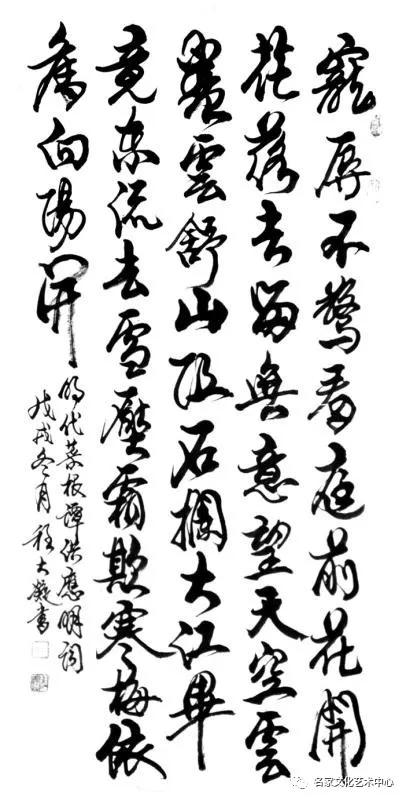 寵辱不驚看庭前花開
花落去留無意望天空雲
卷雲舒山阻石攔大江畢
竟東流去雪壓霜欺寒梅依
舊向陽開
明代菜根譚洪應明詞
戊戌冬月程大書
名家文化艺术中心